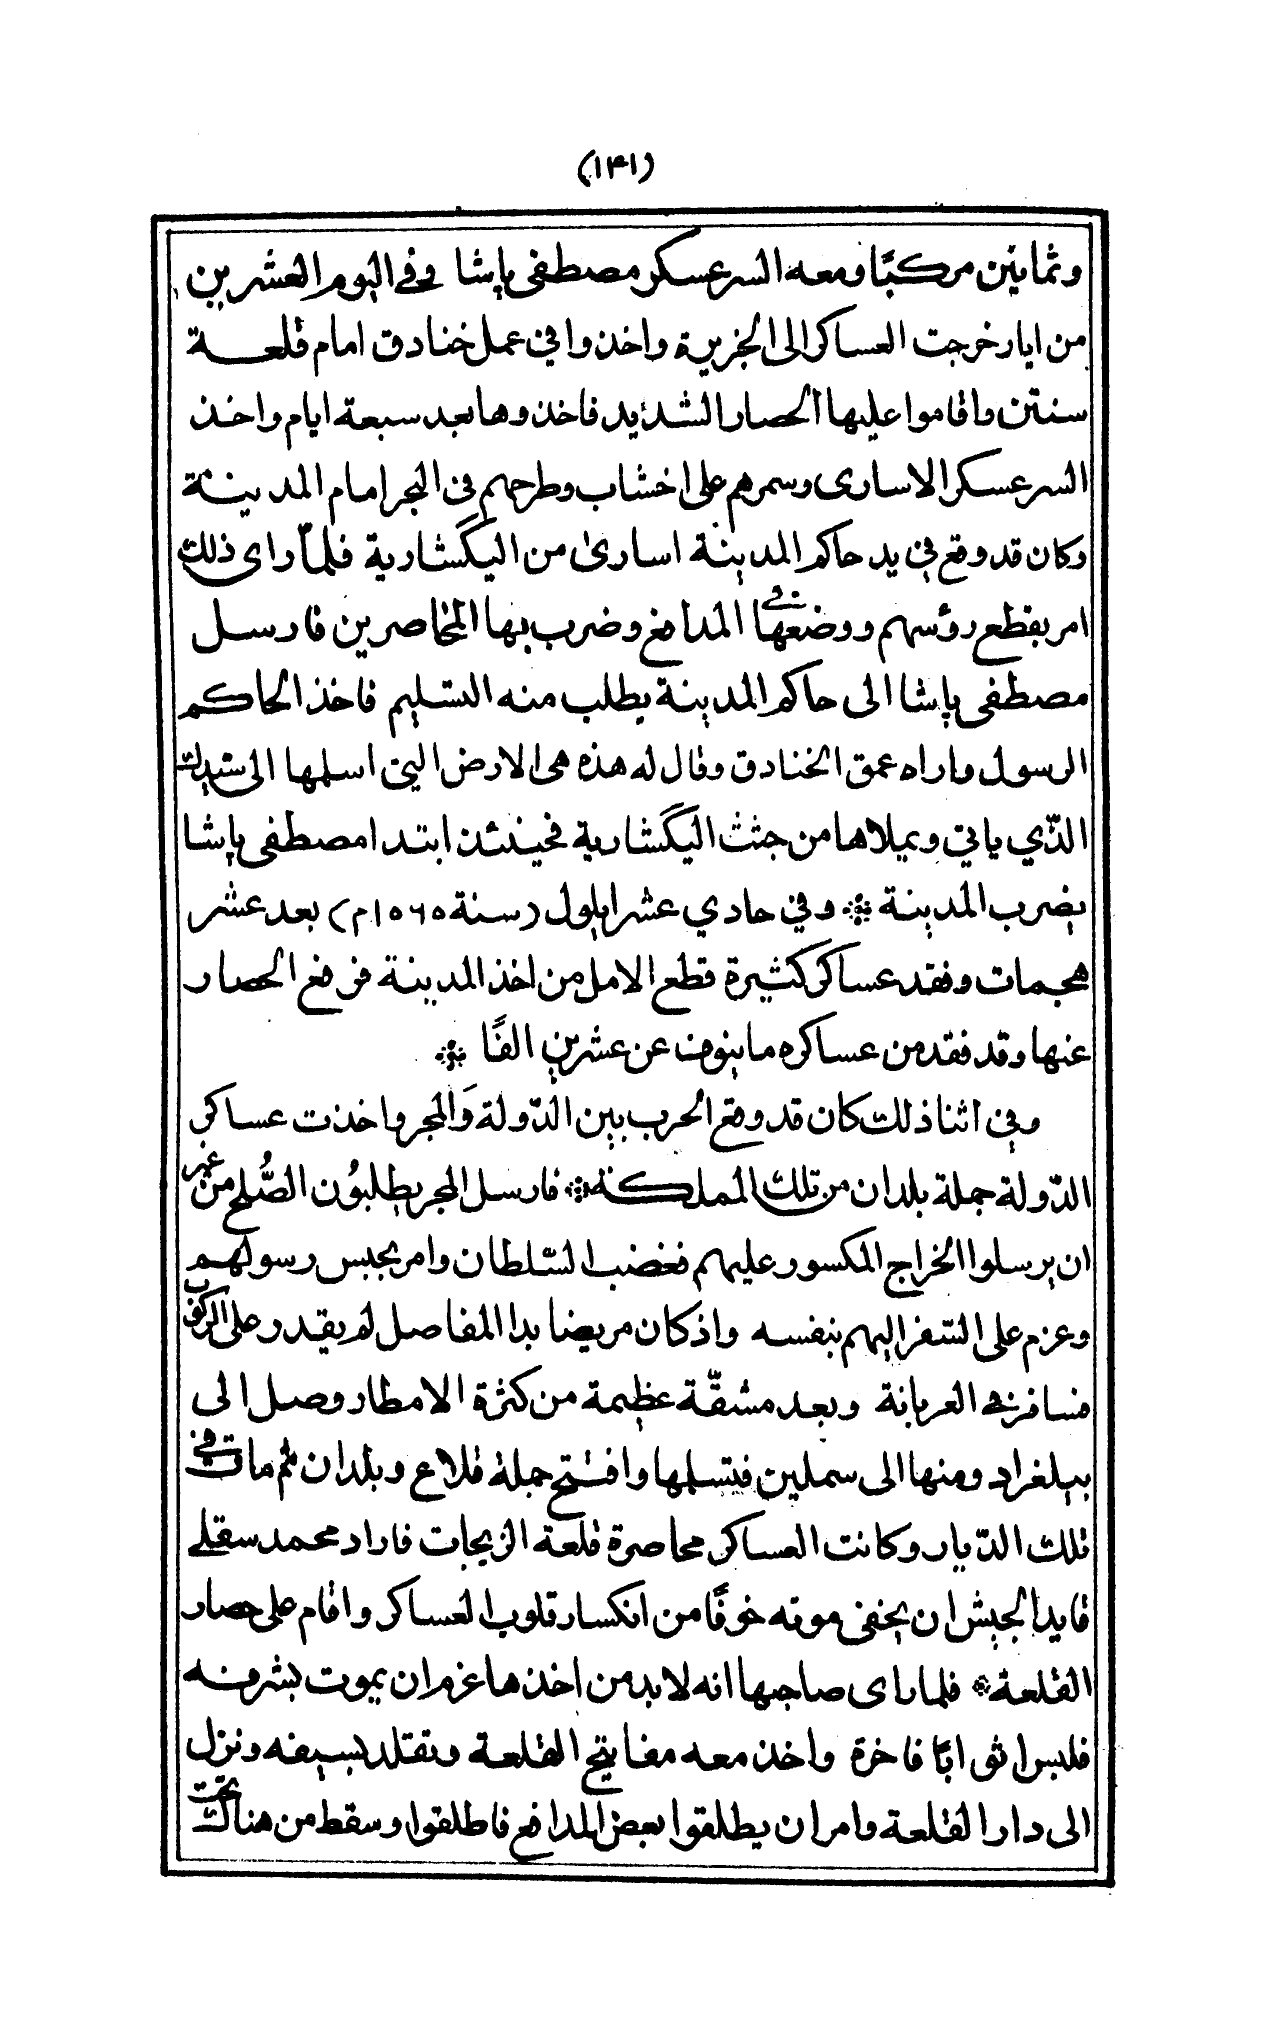 (١٤١)
وثمانين مركبًا ومعه السرعسكر مصطفى پاشا وفي اليوم العشرين
من ايار خرجت العساكر الى الجزيرة واخذوا في عمل خنادق امام قلعة
سنتن واقاموا عليها الحصار الشديد فاخذوها بعد سبعة ايام واخذ
السرعسكر الاسارى وسمرهم على اخشاب وطرحهم في البحر امام المدينة
وكان قد وقع في يد حاكم المدينة اسارى من اليكشارية فلمّا راى ذلك
امر بقطع رؤسهم ووضعها في المدافع وضرب بها المحاصرين فارسل
مصطفى پاشا الى حاكم المدينة يطلب منه التسليم فاخذ الحاكم
الرسول واراه عمق الخنادق وقال له هذه هى الارض التي اسلمها الى سيدك
الذّي ياتي ويملاها من جثث اليكشارية فحينئذ ابتدا مصطفى پاشا
بضرب المدينة ۞ وفي حادي عشر ايلول (سنة ١٥٦٥م) بعد عشر
هجمات وفقد عساكر كثيرة قطع الامل من اخذ المدينة فرفع الحصار
عنها وقد فقد من عساكره ما ينوف عن عشرين الفًا ۞
وفي اثنا ذلك كان قد وقع الحرب بين الدّولة وَالمجر واخذت عساكر
الدّولة جملة بلدان من تلك المملكة ۞ فارسل المجر يطلبوُن الصُّلح من غير
ان يرسلوا الخراج المكسور عليهم فغضب السّلطان وامر بحبس رسولهم
وعزم على السّفر اليهم بنفسه واذ كان مريضا بدا المفاصل لم يقدر على الركوب
فسافر في العربانة وبعد مشقّة عظيمة من كثرة الامطار وصل الى
بيلغراد ومنها الى سملين فتسلمها وافتتح جملة قلاع وبلدان ثم مات في
تلك الدّيار وكانت العساكر محاصرة قلعة الزيجات فاراد محمد سقلي
قايد الجيش ان يخفي موته خوفًا من انكسار قلوب العساكر واقام على حصار
القلعة ۞ فلما راى صاحبها انه لابد من اخذها عزم ان يموت بشرفه
فلبس اثوابًا فاخرة واخذ معه مفاتيح القلعة وتقلد بسيفه ونزل
الى دار القلعة وامر ان يطلقوا بعض المدافع فاطلقوا وسقط من هناك تحت